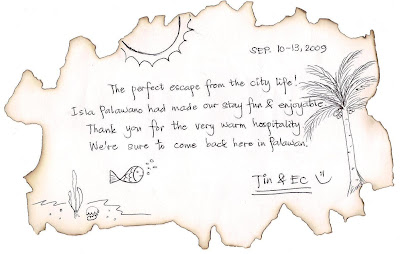 SEP. 10-13, 2009
The perfect escape from the city life!
Isla Palawano had made our stay fun & enjoyable
Thank you for the very warm hospitality
We're sure to come back here in Palawan!
Tin & EC